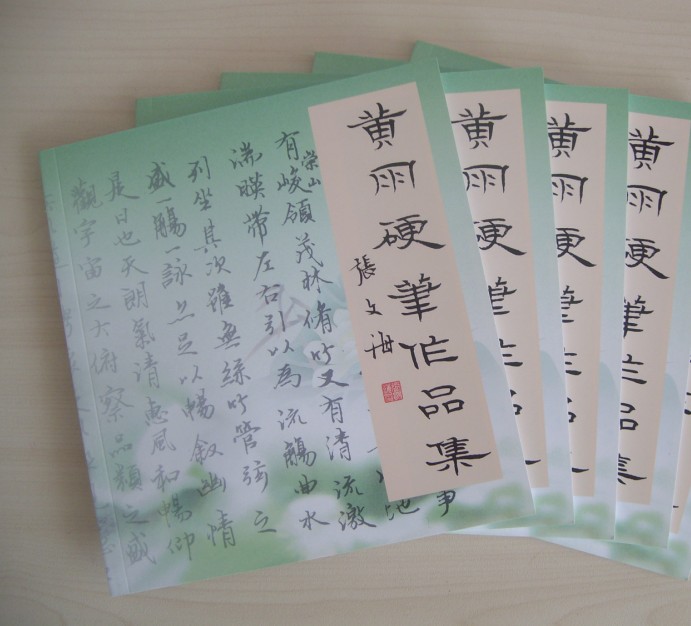 黄雨硬筆作品集
張文海
事
地
有崇山峻領茂林脩竹又有清流激
湍暎帶左右引以為流觴曲水
列坐其次雖無絲竹管弦之
盛一觴一詠亦足以暢叙幽情
是日也天朗氣清惠風和暢仰
觀宇宙之大俯察品類之盛
黄雨硬筆作
黄雨硬筆作
黄雨硬筆作品集